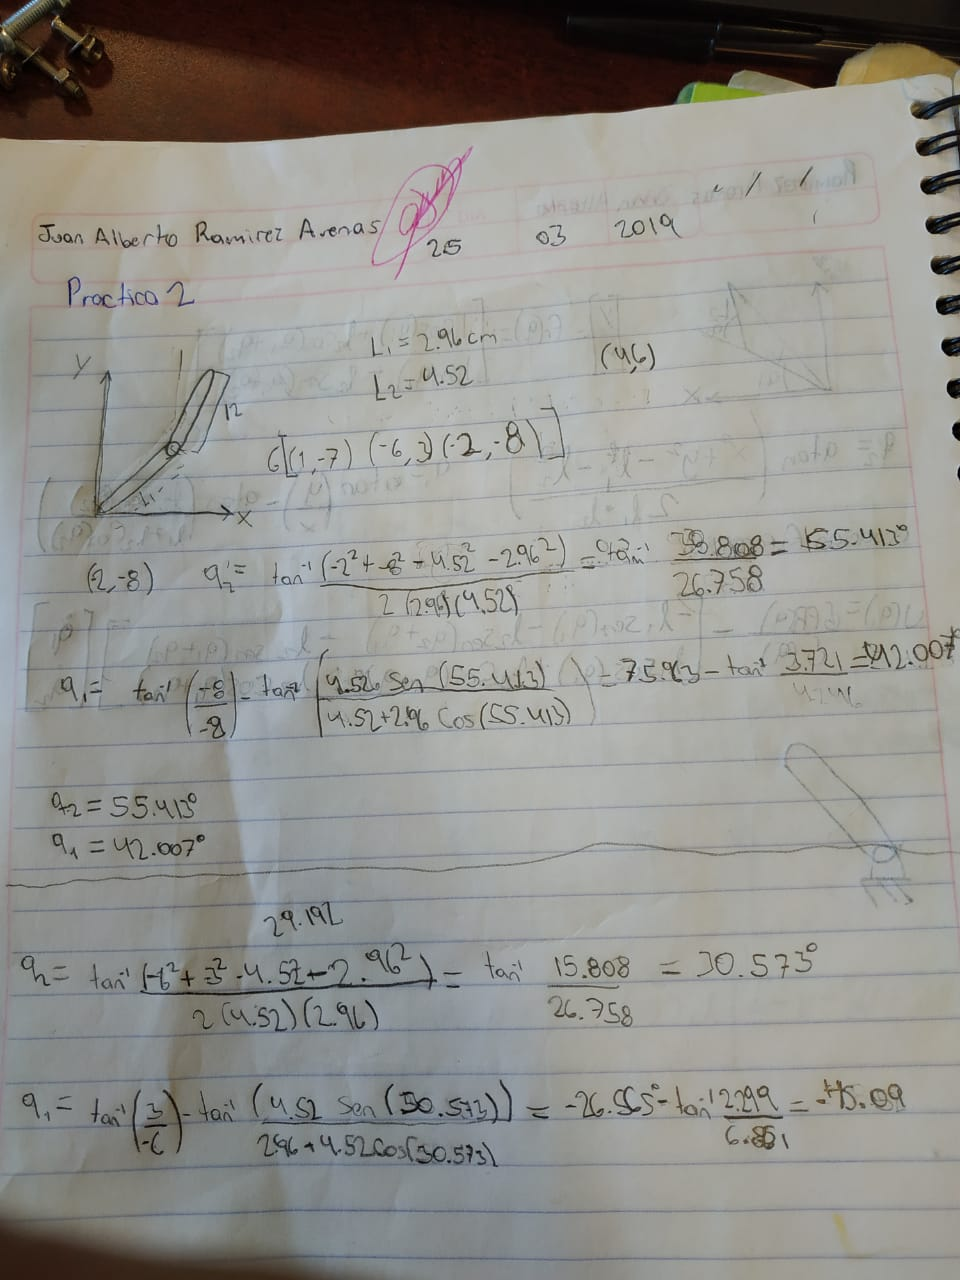 Juan Alberto Ramirez Arenas 25 03 2019
Practica 2
Y
L1 = 2.96cm
L2 = 4.52
(4,6)
12
L1
x
6[(1,-7) (-6,3) (-2,-8)]
(-2,-8) q2 = tan⁻¹ (-2² + -8² - 4.52² - 2.96²) / 2 (2.96)(4.52) = tan⁻¹ 38.808 / 26.758 = 55.413°
q1 = tan⁻¹ (-8/-8) - tan⁻¹ (4.52 sen (55.413) / 4.52+2.96 Cos(55.413)) = 75.963 - tan⁻¹ 3.721 / = 42.007°
q2 = 55.413°
q1 = 42.007°
29.192
q2 = tan⁻¹ (-6² + -3² - 4.52 - 2.96²) / 2(4.52)(2.96) = tan⁻¹ 15.808 / 26.758 = 30.573°
q1 = tan⁻¹ (3/-6) - tan⁻¹ (4.52 sen (30.573)) / 2.96 + 4.52 cos(30.573) = -26.565° - tan⁻¹ 2.299 / = -45.09